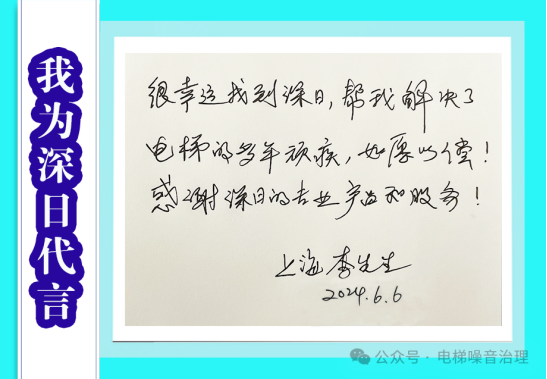 我为深日代言
很幸运找到深日,帮我解决了
电梯的多年顽疾,如厚以偿!
感谢深日的专业产品和服务!
上海 李先生
2024.6.6
公众号·电梯噪音治理